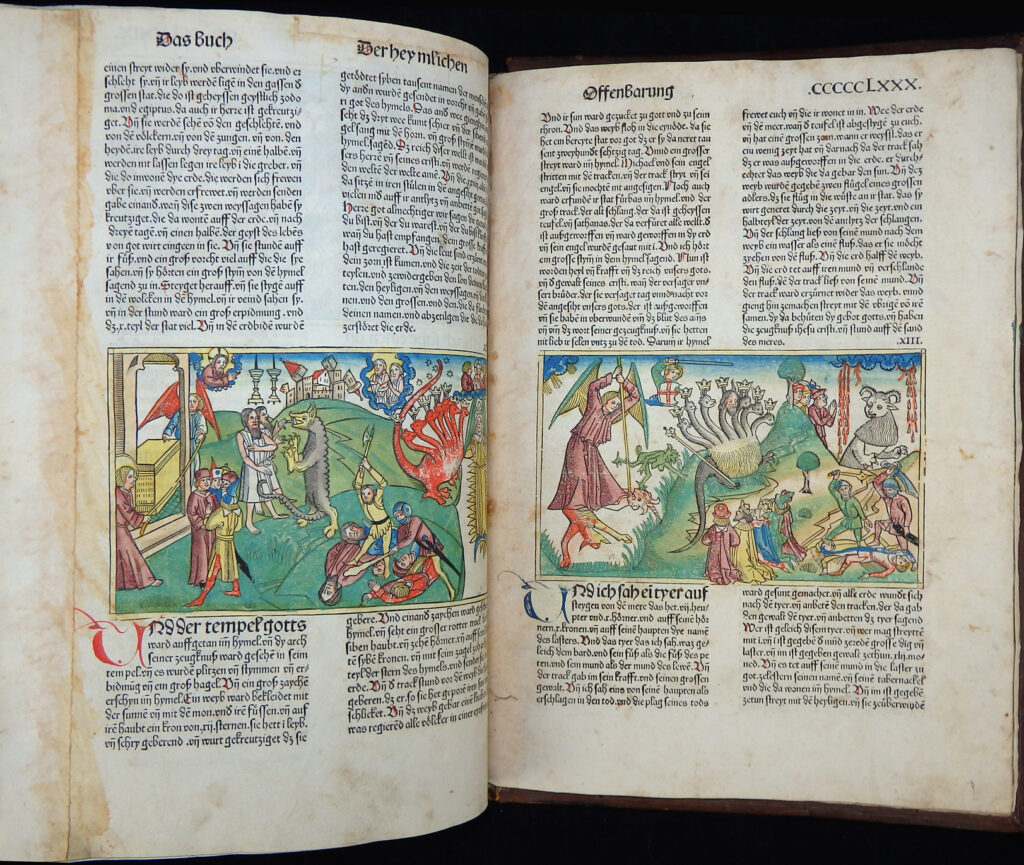 Das Buch
Der heymlichen
einen streyt wider sy.vnd vberwindet sie.vnd er
schlecht sy.vñ ir leyb werdē ligē in den gassen d
grossen stat.die do ist geheyssen geystlich zodo
ma.vnd egiptus.da auch ir herre ist gekreutzi/
get.Vñ sie werdē sehē vō den geschlechtē.vnd
von dē völckern.vñ von dē zungen.vñ von.den
heydē.ire leyb durch drey tag.vñ eine halbē.vñ
werden nit lassen legen ire leyb ī die greber.vñ
die do inwonē dye erde.die werden sich frewen
vber sie.vñ werden erfrewet.vñ werden senden
gabe einand.wañ dise zwen weyssagen habē sy
kreutziget.die da wontē auff der erde.vñ nach
dreyē tagē.vñ einen halbē.der geyst des lebēs
von got wirt eingeen in sie.Vñ sie stundē auff
ir füß.vnd ein groß vorcht viel auff die die sye
sahen.vñ sy hörten ein groß stym̄ von dē hymel
sagend zu in.Steyget herauff.vñ sie stygē auff
in dē wolckē in dē hymel.vñ ir veind sahen sy.
vñ in der stund ward ein groß erpidmung.vnd
dz.x.teyl der stat viel.Vñ in dē erdbidē wurdē
getödtet syben tausent namen der
andn wurdē gesendet in vorcht vñ
ñ got des hymels.Das and wee
seht dz dryt wee kumt schier vñ der
gel sang mit dē horn.vñ groß stym̄
hymel.sagēd.Dz reich diser welt ist
sers herrē vñ seines cristi.vñ werdē
den weltē der welte amē.Vñ die.xxiiij.
da sitzē in iren stülen in dē angesiht
vielen nid auff ir antlytz vñ anbetē
Herre got almechtiger wir sagen dir
du bist.vñ der du warest.vñ der du
wañ du hast empfangen dein grosse
hast geregieret.Vñ die leut sind erzürnt
dein zorn ist kumen.vnd die zeit der todten
teylen.vnd zewidergeben den lon deinen
ten.den heyligen.vñ den weyssagen.vñ den
nen.vnd den grossen.vnd den die da fürchten
deinen namen.vnd abzetilgen die die
zerstöret die erde.
VNd der tempel gotts
ward auffgetan im hymel.vñ dy arch
seiner zeugknuß ward gesehē in sein
tempel.vñ es wurdē plitzen vñ stymmen vñ er/
bidmūg vñ ein groß hagel.Vñ ein groß zaychē
erschyn im hymel.Ein weyb ward bekleidet mit
der sunnē vñ mit dē mon.vnd irē füssen.vñ auff
irē haubt ein kron von.xij.sternen.sie hett ī leyb.
vñ schry geberend.vñ wurt gekreutziget dz sie
gebere.Vnd einand zaychen ward gesehen
hymel.vñ seht ein grosser rotter track
siben haubt.vñ zehē hörner.vñ auff
tē sybē kronen.vñ mit sein zagel
teyl der stern des hymels.vnd sendet
erde.Vñ d track stund vor dē weyb
geberen.dz er.so sie het geporē
schlicket.Vñ dz weyb gebar eine
was regierēd alle völcker in einer eysnen
Offenbarung
.CCCCCLXXX.
Vnd ir sun ward gezucket zu got vnd zu seim
thron.Vnd das weyb floh in die eynöde.da sie
het ein bereyte stat vor got dz er sy da neret tau
sent zweyhundt sehtzig tag.Vnnd ein grosser
streyt ward im hymel.Michael vnd sein engel
stritten mit dē tracken.vñ der track streyt.vñ sei
engel.vñ sie mochtē nit angesigen.Noch auch
ward erfundē ir stat fürbas im hymel.vnd der
groß track.der alt schlang.der da ist geheyssen
teufel.vñ sathanas.der da verfüret alle welt.d
ist außgeworffen vñ ward geworffen in dy erd
vñ sein engel wurdē gesant mit ī.Vnd ich hört
ein grosse stym̄ in dem hymel sagend.Nun ist
worden heyl vñ krafft vñ dz reich vnsers gots.
vñ d gewalt seines cristi.wañ der versager vn/
sers brüder.der sie versagt tag vnd nacht vor
dē angesiht vnsers gots.der ist außgeworffen
vñ sie habē in vberwundē vō dz blut des lams
vñ vō dz wort seiner gezeugknuß.vñ sie hetten
nit lieb ir selen vntz zu dē tod.Darum̄ ir hymel
frewet euch vñ die ir wonet in in.Wee der erde
vñ dē meer.wañ d teufel ist abgestygē zu euch.
vñ hat eine grossen zorn.wann er weysst.das er
ein wenig zeyt hat vñ darnach da der track sah
dz er was außgeworffen in die erde.er durch/
echtet das weyb die da gebar den sun.Vñ dez
weyb wurdē gegebē zwen flügel eines grossen
adlers.dz sie flüg in die wüste an ir stat.das sy
wirt generet durch die zeyt.vñ die zeyt.vnd ein
halbteyl der zeyt.von dē antlytz der schlangen.
Vñ der schlang ließ von seinē mund nach dem
weyb ein wasser als eine fluß.das er sie möcht
zyehen vō dē fluß.Vñ die erd halff dē weyb.
Vñ die erd tet auff iren mund vñ verschlande
den fluß.dē der track ließ von seinē mund.Vñ
der track ward erzürnet wider das weyb.vnnd
gieng hin zemachen streyt mit dē vbrigē vō irē
samen.dy da behüten dy gebot gotts.vñ haben
die zeugknuß ihesu cristi.vñ stund auff dē sand
des meres.
.XIII.
VNd ich sah ei tyer auf
steygen von dē mere das het.vij.heu/
pter vnd.x.hörner.vnd auff seinē hör
nern.x.kronen.vñ auff seine haupten dye namē
des lasters.Vnd das tyer das ich sah.was ge/
leich dem bard.vnd sein füß als die füß des pe
ren.vnd sein mund als der mund des lewē.Vñ
der track gab im sein krafft.vnd seinen grossen
gewalt.Vñ ich sah eins von seinē haupten als
erschlagen in den tod.vnd die plag seines tods
ward gesunt gemachet.vñ alle erde wundt sich
nach dē tyer.vñ anbetē den tracken.der da gab
den gewalt dē tyer.vñ anbetten dz tyer sagend
Wer ist geleich disem tyer.vñ wer mag streyttē
mit ī.vñ ī ist gegebē d mūd zeredē grosse dig vñ
laster.vñ im ist gegeben gewalt zethun.xlij.mo/
ned.Vñ es tet auff seinē mund in die laster zu
got.zelestern seinen namē.vñ seine tabernackel
vnd die da wonen im hymel.Vñ im ist gegebē
zetun streyt mit dē heyligen.vñ sie zeüberwindē